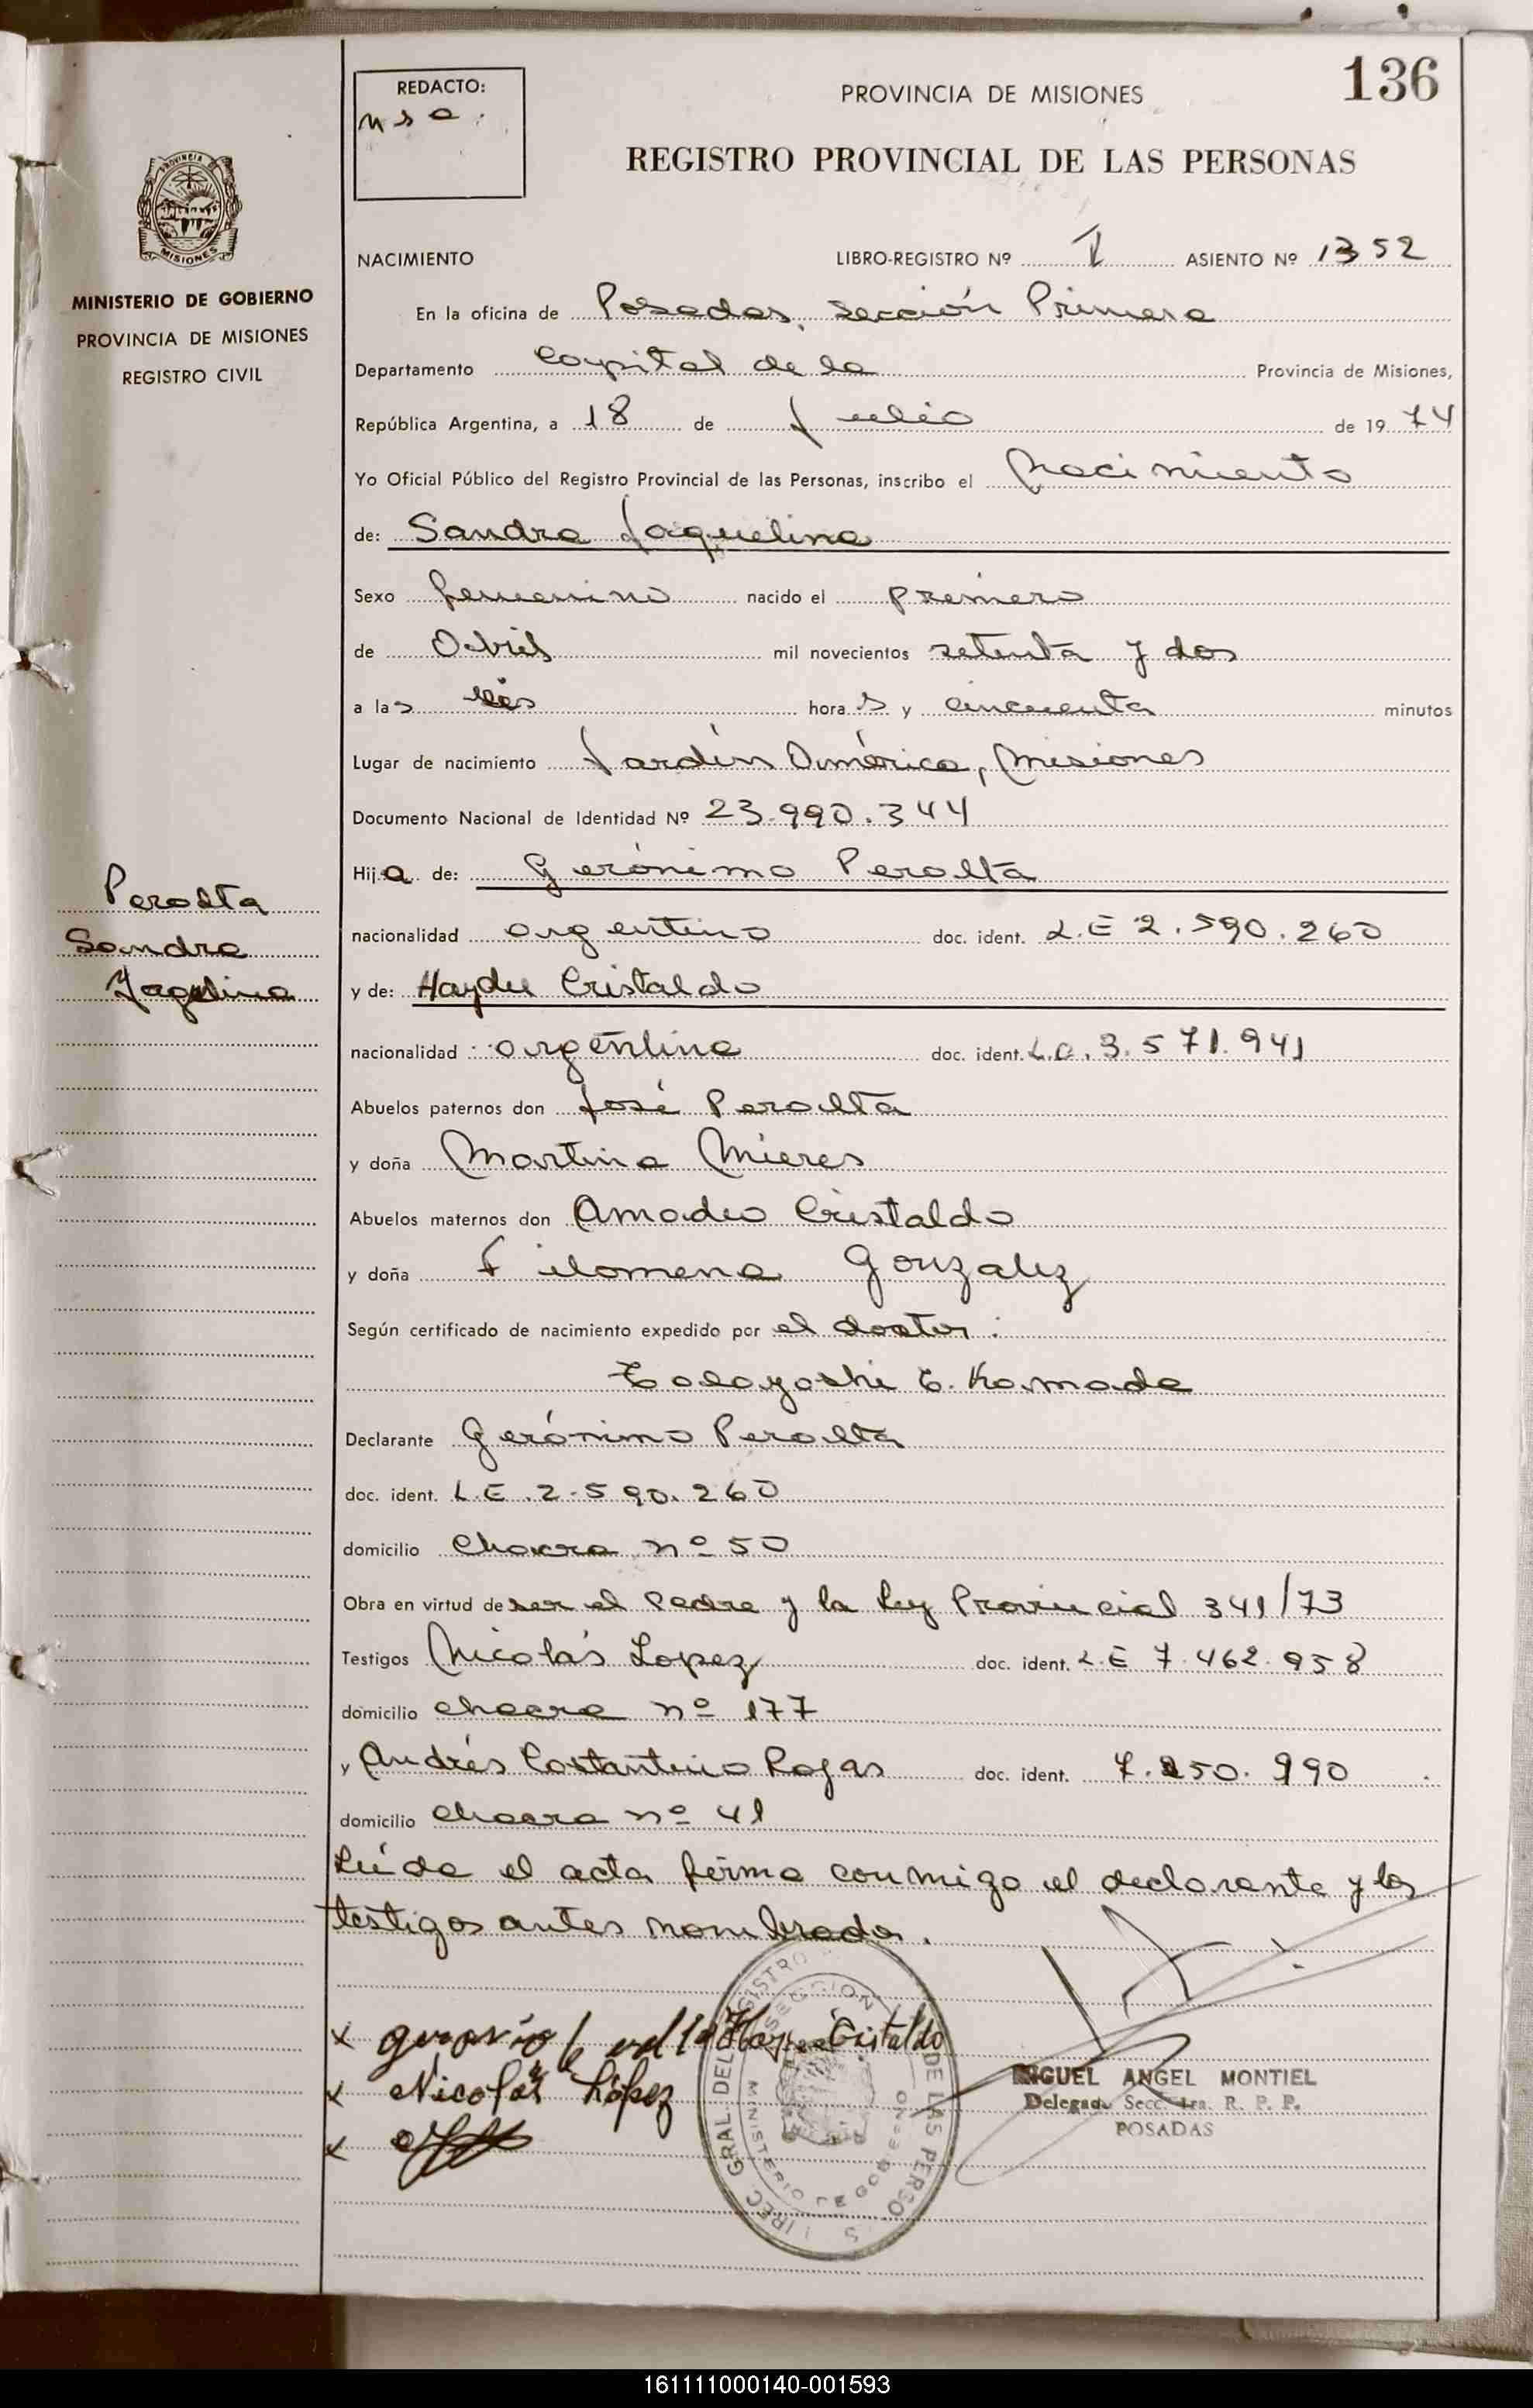 136
REDACTO:
PROVINCIA DE MISIONES
REGISTRO PROVINCIAL DE LAS PERSONAS
PROVINCIA DE
MISIONES
MINISTERIO DE GOBIERNO
PROVINCIA DE MISIONES
REGISTRO CIVIL
NACIMIENTO LIBRO-REGISTRO Nº I ASIENTO Nº 1352
En la oficina de Posadas, sección Primera
Departamento Capital de la Provincia de Misiones,
República Argentina, a 18 de Julio de 1974
Yo Oficial Público del Registro Provincial de las Personas, inscribo el Nacimiento
de: Sandra Jaquelina
Sexo femenino nacido el primero
de Abril mil novecientos setenta y dos
a las hora s y cincuenta minutos
Lugar de nacimiento Jardín América, Misiones
Documento Nacional de Identidad Nº 23.990.344
Hija de: Gerónimo Peralta
Peralta
Sandra
Jaqelina
nacionalidad argentino doc. ident. L.E 2.590.260
y de: Haydee Cristaldo
nacionalidad argentina doc. ident. L.C. 3.571.941
Abuelos paternos don José Peralta
y doña Martina Mieres
Abuelos maternos don Amadeo Cristaldo
y doña Filomena Gonzalez
Según certificado de nacimiento expedido por el doctor:
E. Kamada
Declarante Gerónimo Peralta
doc. ident. L.E. 2.590.260
domicilio Chacra nº 50
Obra en virtud de ser el Padre y la ley Provincial 341/73
Testigos Nicolás Lopez doc. ident. L.E 7.462.958
domicilio chacra nº 177
y Andrés Costantino Rojas doc. ident. 7.850.990
domicilio chacra nº 41
Leída el acta firma conmigo el declarante y los
testigos antes nombrados.
x Cristaldo
x Nicolás López
x
DIREC. GRAL. DEL REGISTRO DE LAS PERSONAS
SECCION
MINISTERIO DE GOBIERNO
MIGUEL ANGEL MONTIEL
Delegado Secc. 1ra. R. P. P.
POSADAS
161111000140-001593